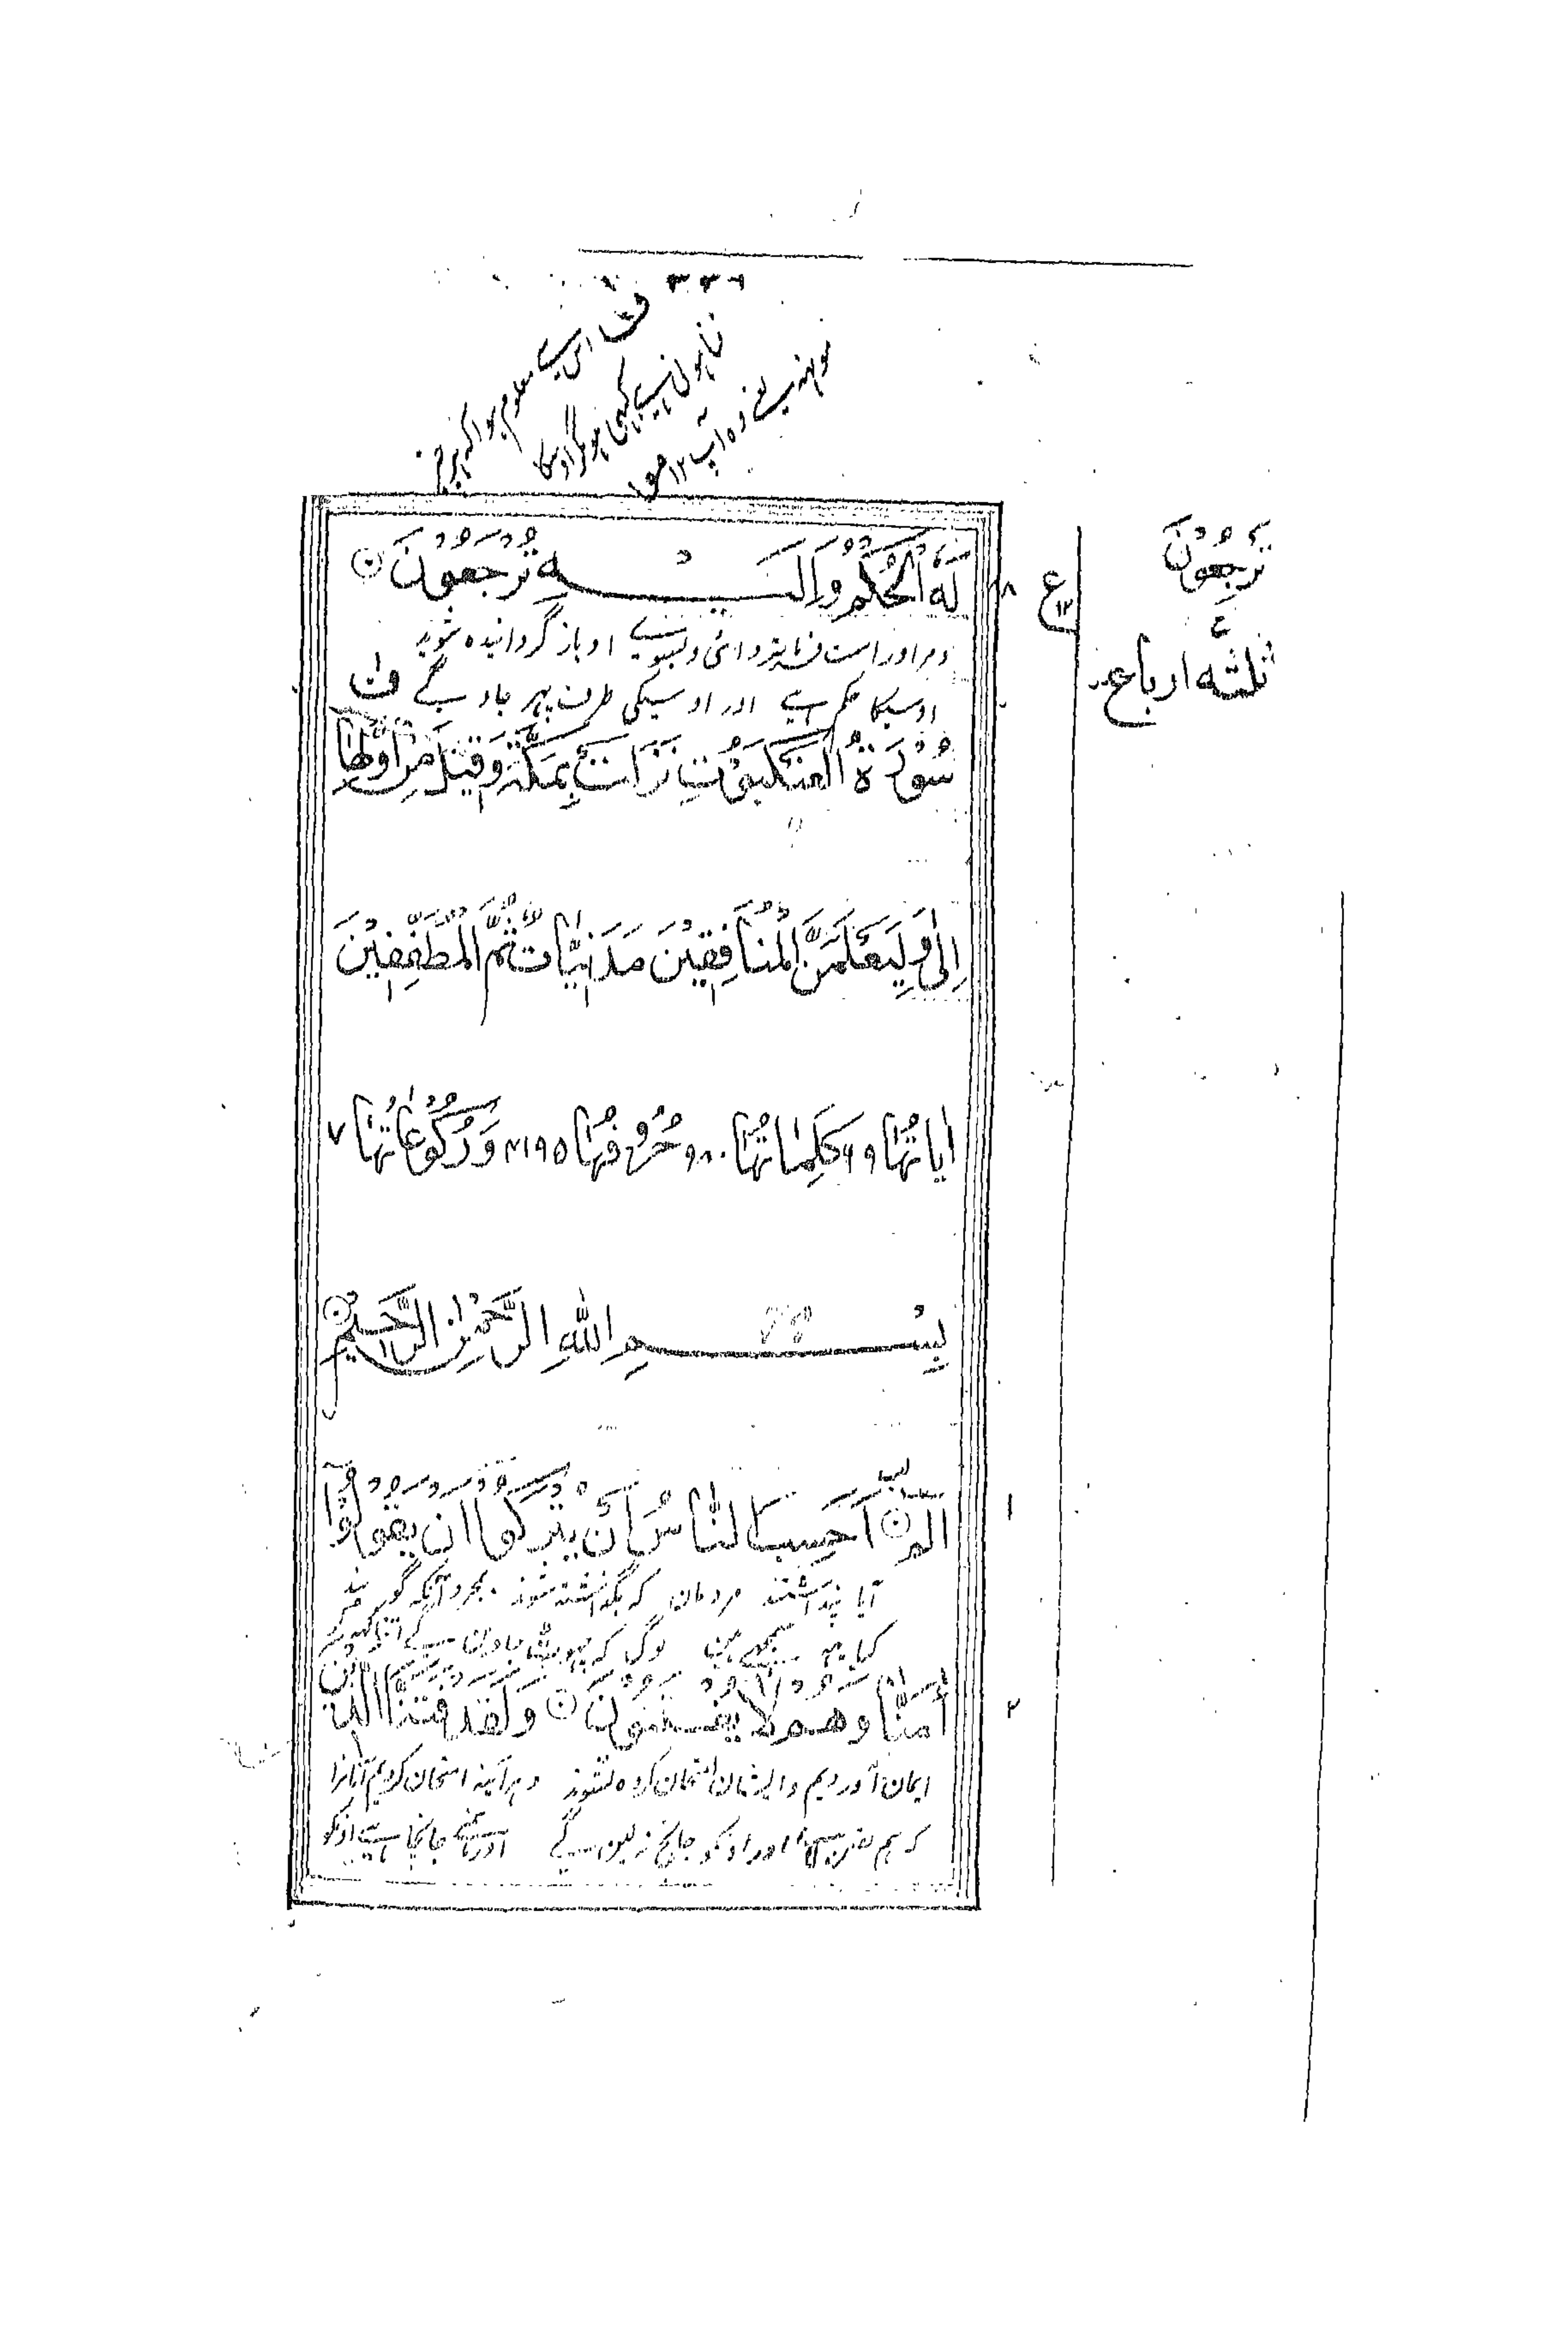 ۳۳۶
ف اس سے معلوم ہوا کہ ہر چیز
فنا ہونی ہے کبھی ہو مگر اوسکا
مونہہ یعنے وہ آپ ۱۲ مو
لَهُ الْحُكْمُ وَإِلَيْهِ تُرْجَعُوْنَ
ومر اوراست فرمانروائی وبسوے او باز گردانیده شوید
اوسیکا حکم ہے اور اوسیکی طرف پہر جاوےگے ف
سُوْرَةُ الْعَنْكَبُوْتِ نَزَلَتْ بِمَكَّةَ وَقِيْلَ مِنْ اَوَّلِهَا
اِلٰى وَلِيَعْلَمَنَّ الْمُنَافِقِيْنَ مَدَنِيَّاتٌ ثُمَّ الْمُطَفِّفِيْنَ
اٰيَاتُهَا ۶۹ كَلِمَاتُهَا ۹۸۰ وَحُرُوْفُهَا ۴۱۹۵ وَرُكُوْعَاتُهَا ۷
بِسْمِ اللهِ الرَّحْمٰنِ الرَّحِيْمِ
الٓمّٓ اَحَسِبَ النَّاسُ اَنْ يُّتْرَكُوْا اَنْ يَّقُوْلُوْٓا
آیا پنداشتند مردمان که بگذاشته شوند بمجرد آنکه گویند
کیا یہ سمجھے ہین لوگ کہ چھوٹ جاوین گے اتنا کہہ کر
اٰمَنَّا وَهُمْ لَا يُفْتَنُوْنَ وَلَقَدْ فَتَنَّا الَّذِيْنَ
ایمان آوردیم وایشان امتحان کرده نشوند وہرآئینه امتحان کردیم آنانرا
کہ ہم یقین لائے اور اونکو جانچ نہ لین گے اور ہمنے جانچا ہے اونکو
تُرْجَعُوْنَ
ثلثه ارباع
ع
۱۲
۸
۱
۲